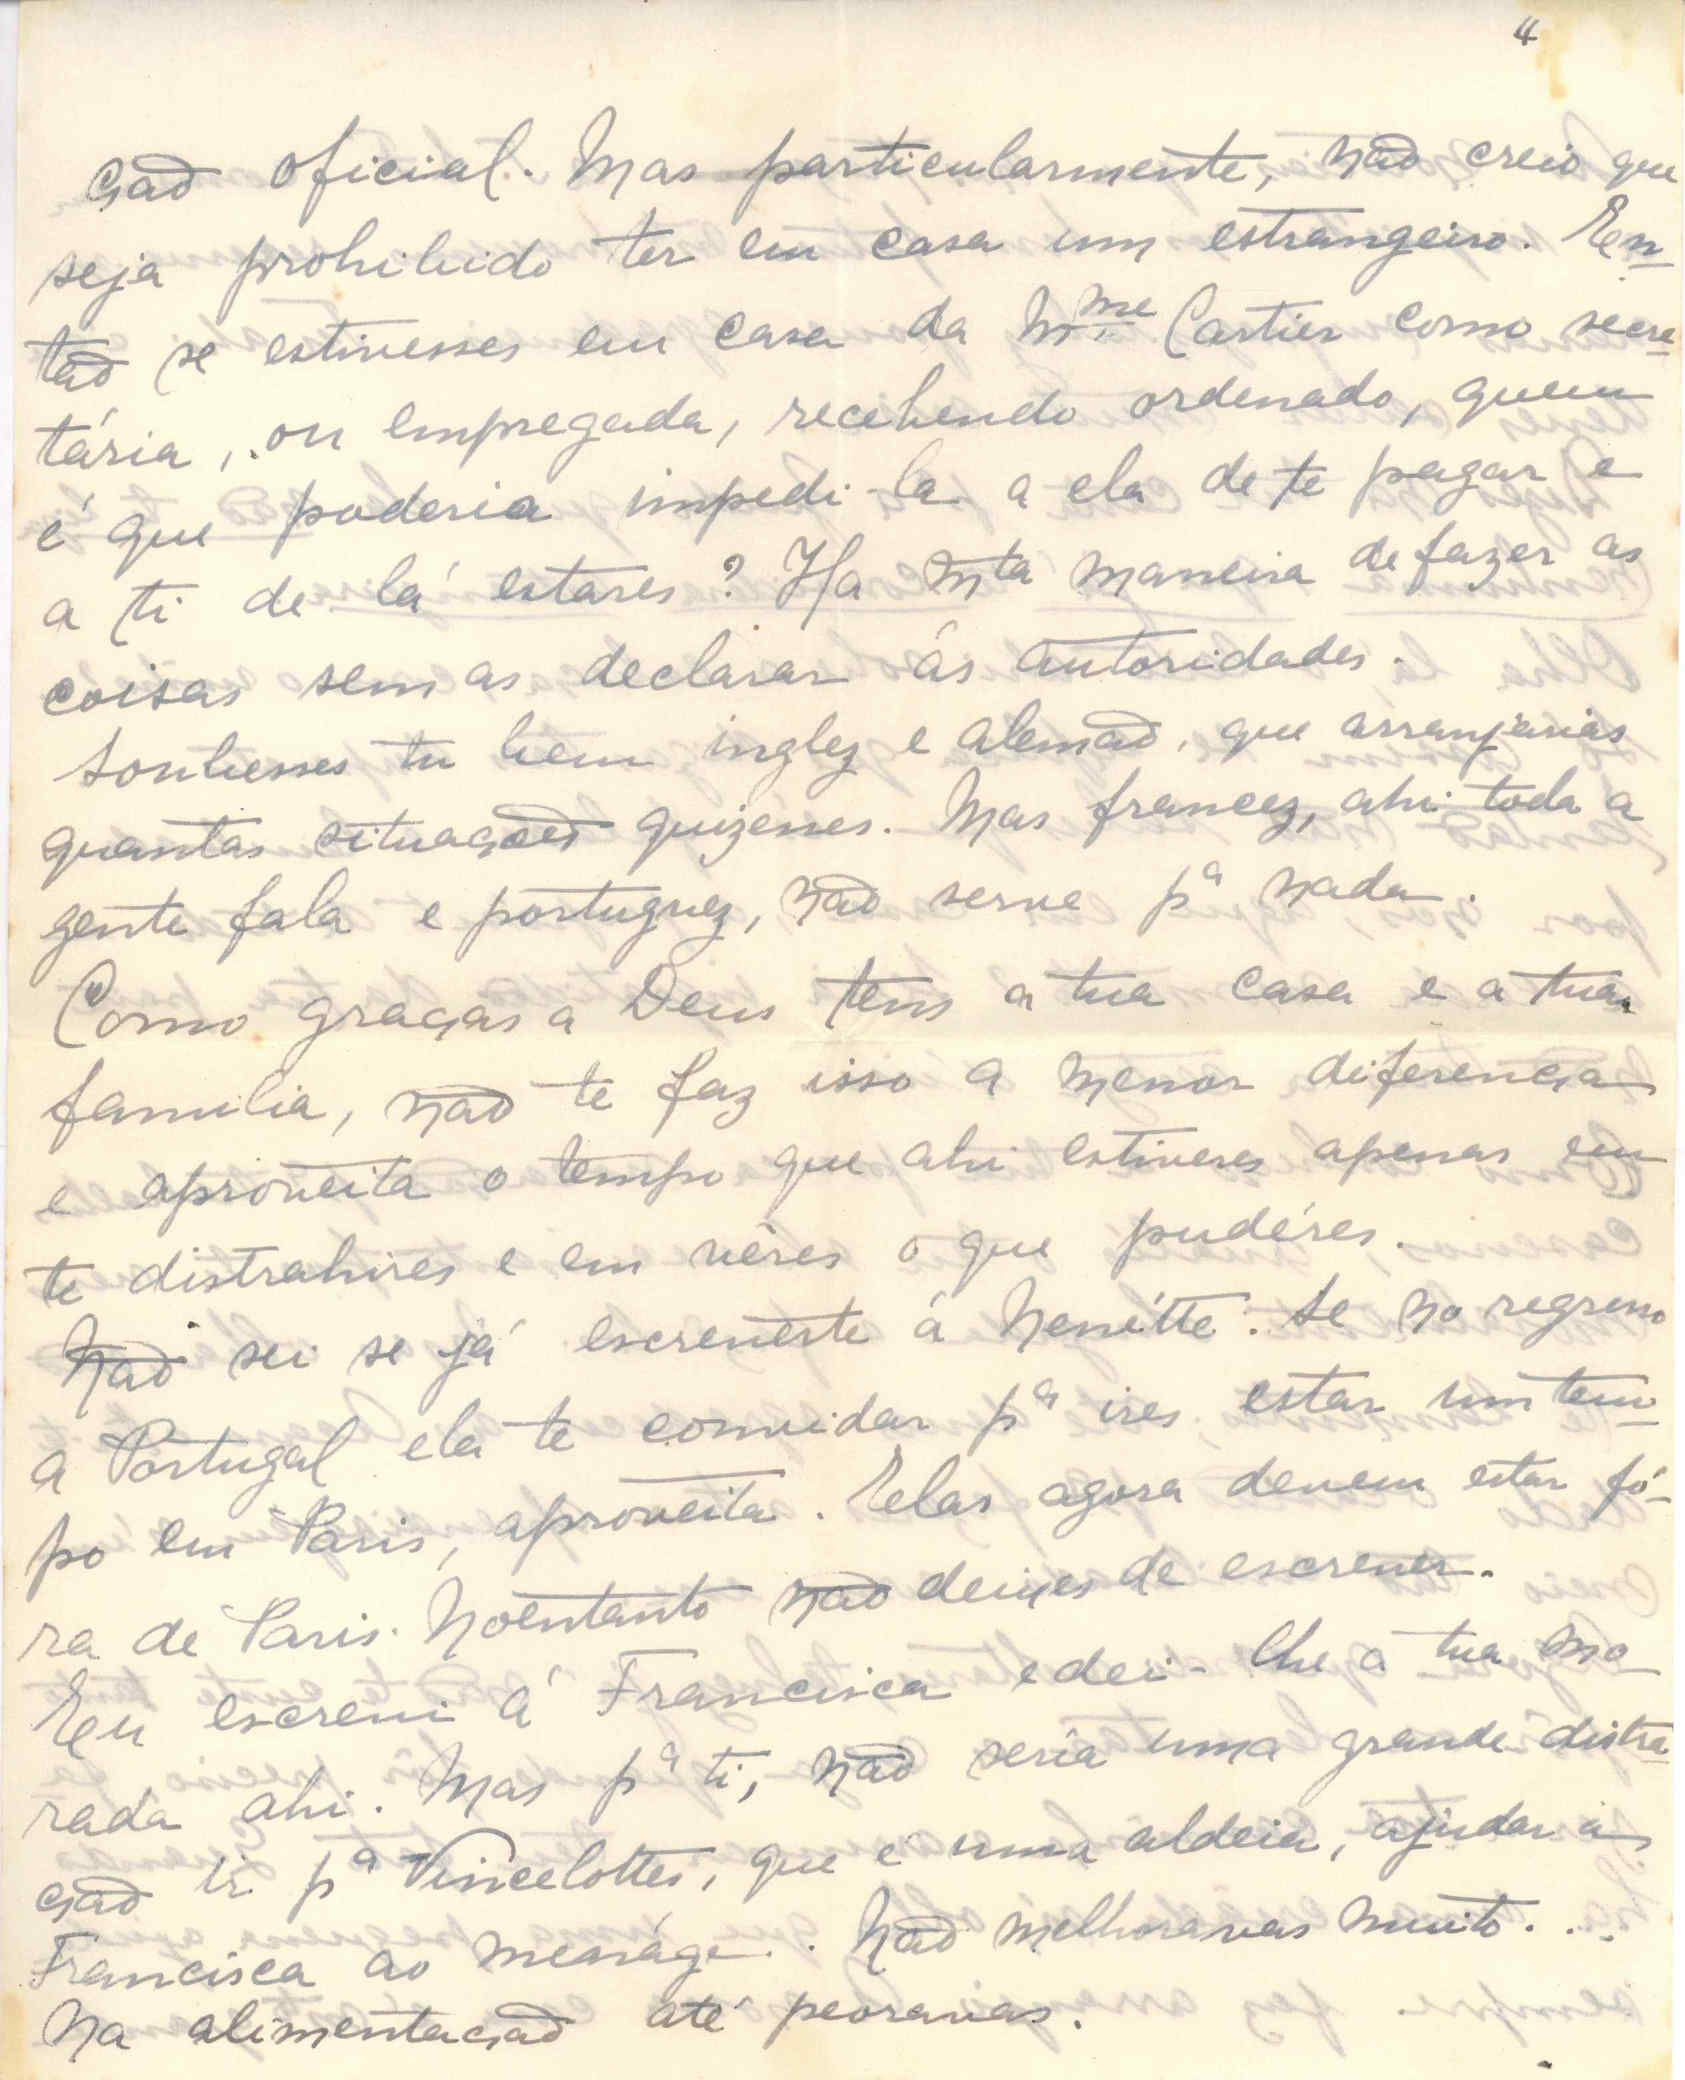 4
ção oficial. Mas particularmente, não creio que
seja prohibido ter em casa um estrangeiro. En-
tão se estivesses em casa da Mme Cartier como secre-
tária, ou empregada, recebendo ordenado, quem
é que poderia impedi-la a ela de te pagar e
a ti de lá estares? Ha mta maneira de fazer as
coisas sem as declarar ás autoridades.
Soubesses tu bem inglez e alemão, que arranjarias
quantas situações quizesses. Mas francez, ahi toda a
gente fala e portuguez, não serve pa nada.
Como graças a Deus tens a tua casa e a tua
familia, não te faz isso a menor diferença
e aproveita o tempo que ahi estiveres apenas em
te distrahires e em vêres o que pudéres.
Não sei se já escreveste á Nenétte. Se no regresso
a Portugal ela te convidar pa ires estar um tem-
po em Paris, aproveita. Elas agora devem estar fó-
ra de Paris. Noentanto não deixes de escrever.
Eu escrevi á Francisca e dei-lhe a tua mo-
rada ahi. Mas pa ti, não seria uma grande distra-
ção ir pa Vincelottes, que é uma aldeia, ajudar a
Francisca ao menáge.. Não melhoravas muito...
Na alimentação até peoravas.